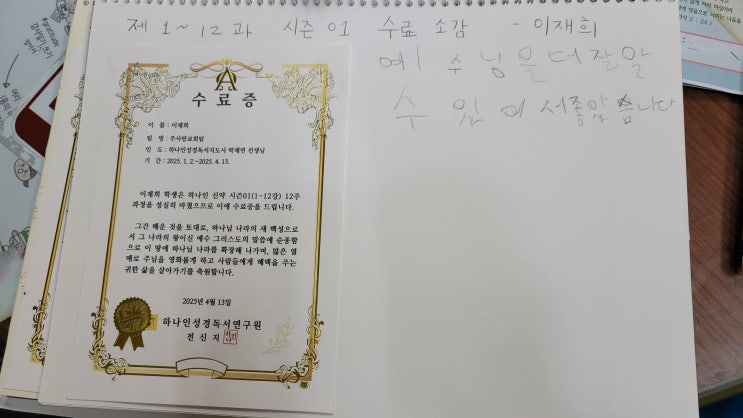 제 1~12과 시즌 01 수료 소감 - 이재희
예수님을 더 잘 알
수 있어서 좋았습니다
수료증
이 름 : 이재희
팀 명 : 주사랑교회팀
인 도 : 하나인성경독서지도사 박재연 선생님
기 간 : 2025. 1. 2.~2025. 4. 13.
이재희 학생은 하나인 신약 시즌01(1~12강) 12주
과정을 성실히 마쳤으므로 이에 수료증을 드립니다.
그간 배운 것을 토대로, 하나님 나라의 새 백성으로
서 그 나라의 왕이신 예수 그리스도의 말씀에 순종함
으로 이 땅에 하나님 나라를 확장해 나가며, 많은 열
매로 주님을 영화롭게 하고 사람들에게 혜택을 주는
귀한 삶을 살아가기를 축원합니다.
2025년 4월 13일
하나인성경독서연구원
전 신 지